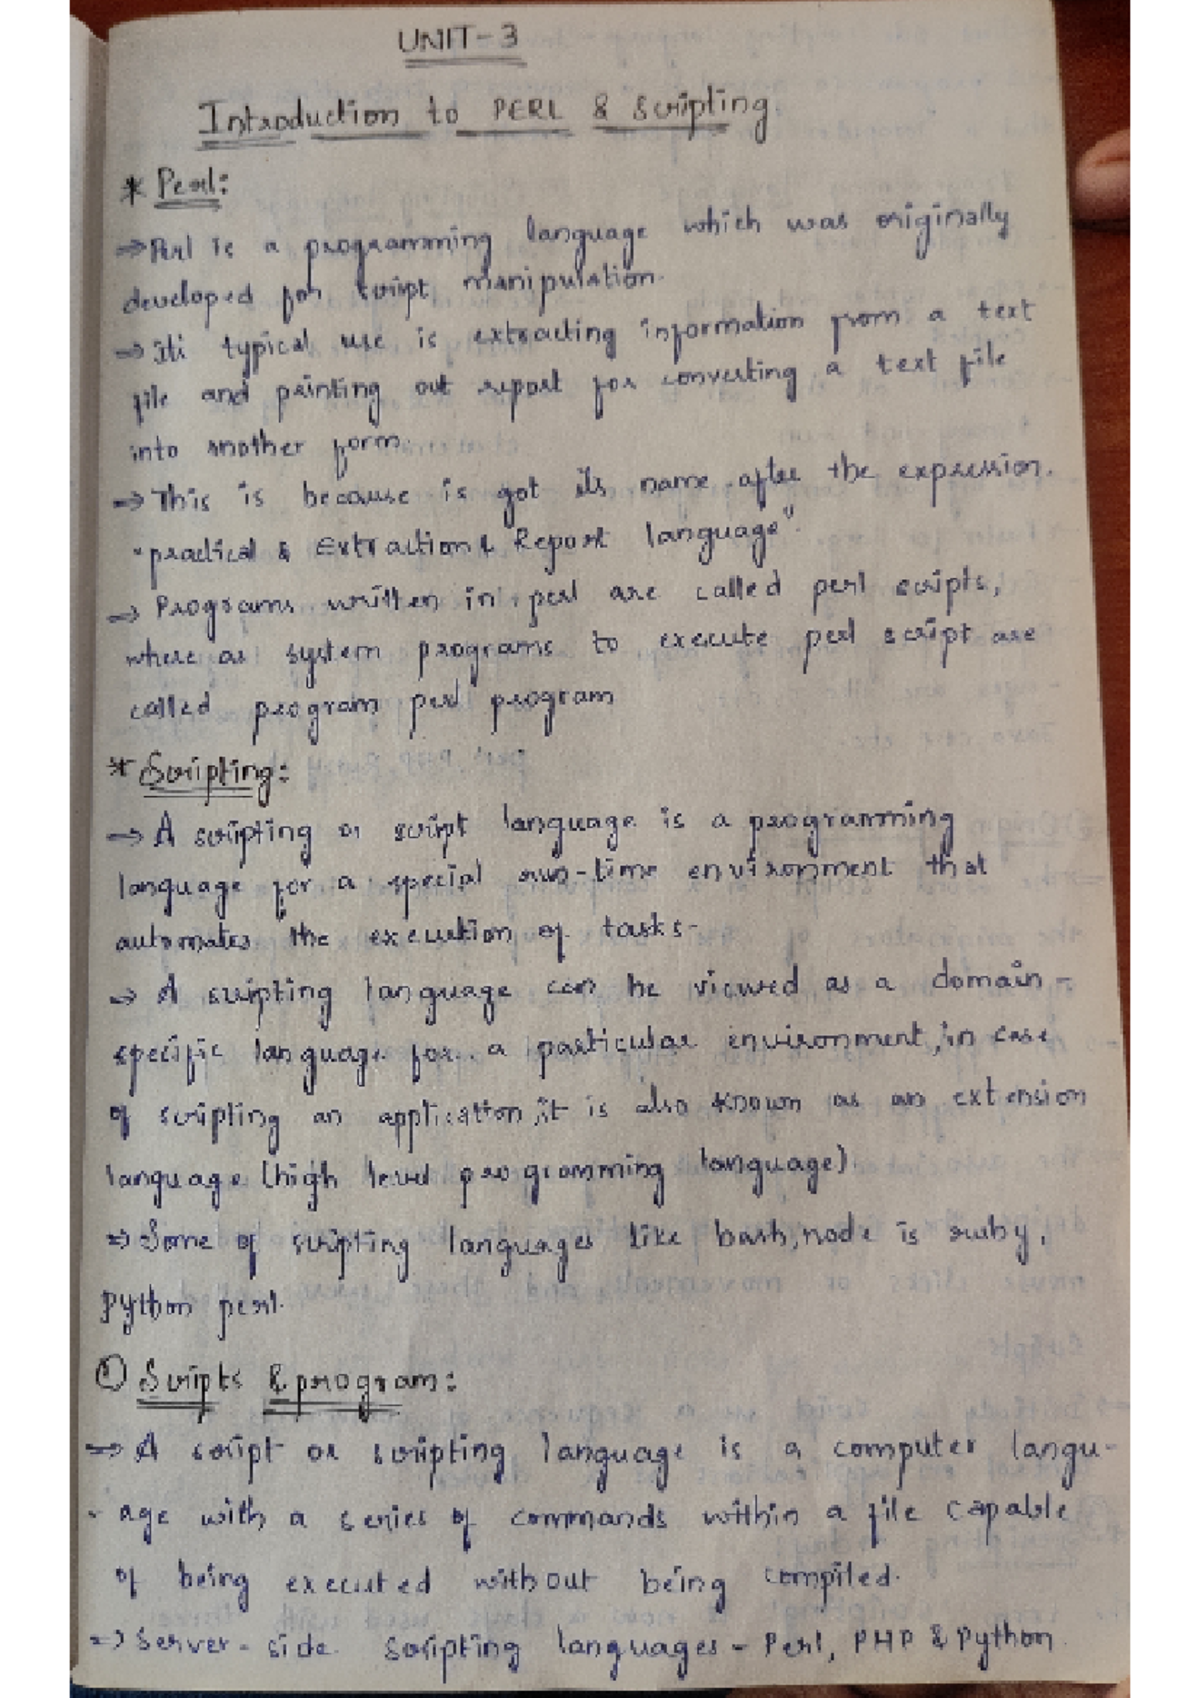 UNIT-3
Introduction to PERL & Scripting
* Perl:
⇒ Perl is a programming language which was originally
developed for script manipulation.
⇒ Its typical use is extracting information from a text
file and printing out report for converting a text file
into another form.
⇒ This is because is got its name after the expression.
"practical & Extraction & Report language".
⇒ Programs written in perl are called perl scripts,
where as system programs to execute perl script are
called program perl program
* Scripting:
⇒ A scripting or script language is a programming
language for a special run-time environment that
automates the execution of tasks-
⇒ A scripting language can be viewed as a domain-
specific language for a particular environment, in case
of scripting an application, it is also known as an extension
language (high level programming language)
⇒ Some of scripting languages like bash, node is ruby,
Python perl.
① Scripts & program:
⇒ A script or scripting language is a computer langu-
- age with a series of commands within a file capable
of being executed without being compiled.
⇒ Server-side Scripting languages - Perl, PHP & Python.